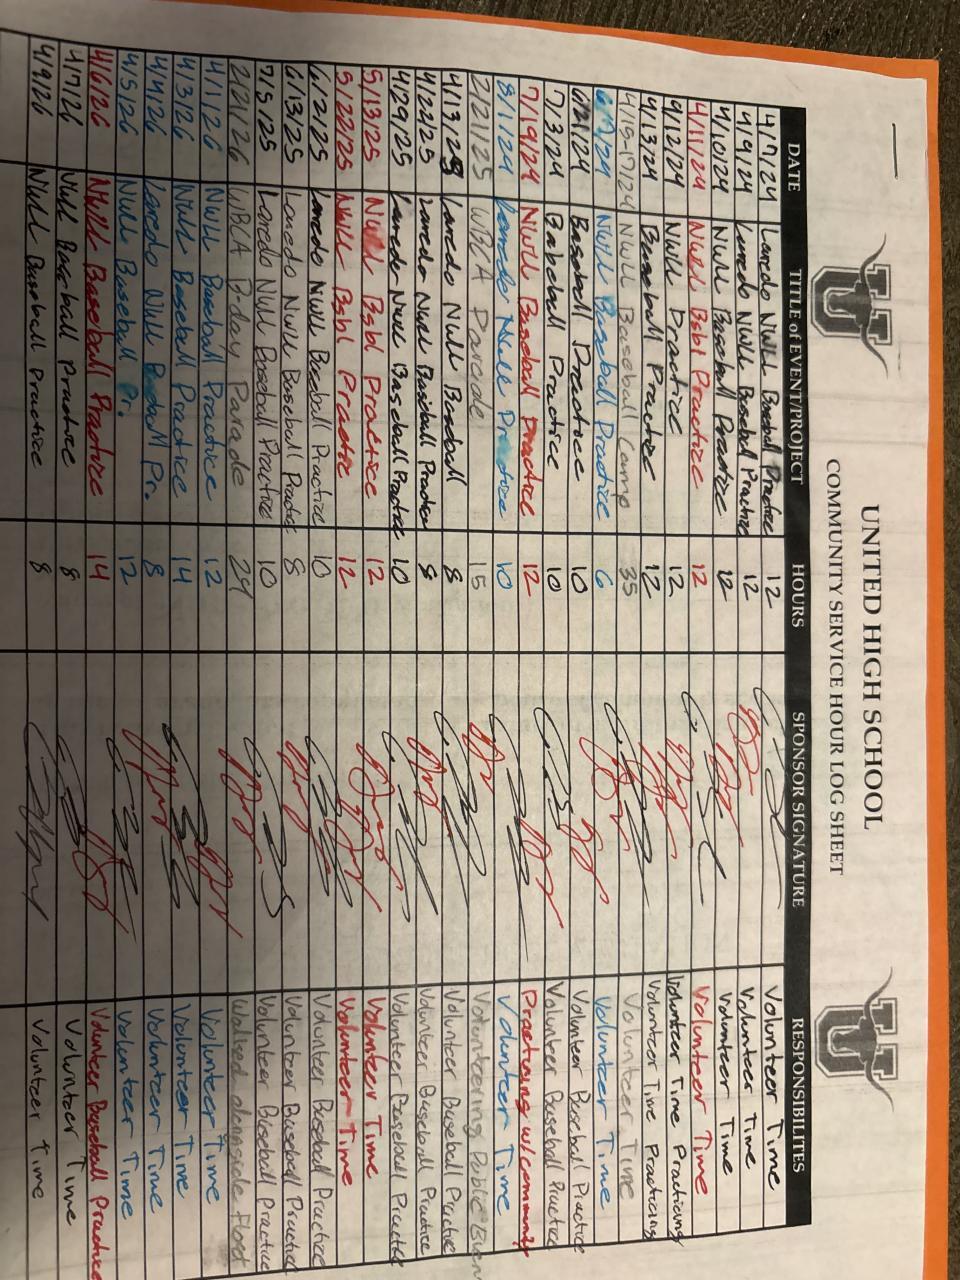 UNITED HIGH SCHOOL
COMMUNITY SERVICE HOUR LOG SHEET
DATE TITLE of EVENT/PROJECT HOURS SPONSOR SIGNATURE RESPONSIBILITES
4/7/24 Laredo NWLL Baseball Practice 12 Volunteer Time
4/9/24 Laredo NWLL Baseball Practice 12 Volunteer Time
4/10/24 NWLL Baseball Practice 12 Volunteer Time
4/11/24 NWLL Bsbl Practice 12 Volunteer Time
4/12/24 NWLL Practice 12 Volunteer Time Practicing
4/13/24 Baseball Practice 12 Volunteer Time Practicing
4/15-17/24 NWLL Baseball Camp 35 Volunteer Time
NWLL Baseball Practice 6 Volunteer Time
6/21/24 Baseball Practice 10 Volunteer Baseball Practice
7/3/24 Baseball Practice 10 Volunteer Baseball Practice
7/19/24 NWLL Baseball Practice 12 Practicing w/community
8/1/24 Laredo NWLL Practice 10 Volunteer Time
2/21/25 WBCA Parade 15 Volunteering Public
4/13/25 Laredo NWLL Baseball 8 Volunteer Baseball Practice
4/22/25 Laredo NWLL Baseball Practice 8 Volunteer Baseball Practice
4/29/25 Laredo NWLL Baseball Practice 10 Volunteer Baseball Practice
5/13/25 NWLL Bsbl Practice 12 Volunteer Time
5/22/25 NWLL Bsbl Practice 12 Volunteer Time
6/21/25 Laredo NWLL Baseball Practice 10 Volunteer Baseball Practice
6/13/25 Laredo NWLL Baseball Practice 8 Volunteer Baseball Practice
7/5/25 Laredo NWLL Baseball Practice 10 Volunteer Baseball Practice
2/21/26 WBCA B-day Parade 24 Walked alongside Float
4/1/26 NWLL Baseball Practice 12 Volunteer Time
4/3/26 NWLL Baseball Practice 14 Volunteer Time
4/4/26 Laredo NWLL Baseball Pr. 8 Volunteer Time
4/5/26 NWLL Baseball Pr. 12 Volunteer Time
4/6/26 NWLL Baseball Practice 14 Volunteer Baseball Practice
4/7/26 NWLL Baseball Practice 8 Volunteer Time
4/9/26 NWLL Baseball Practice 8 Volunteer Time